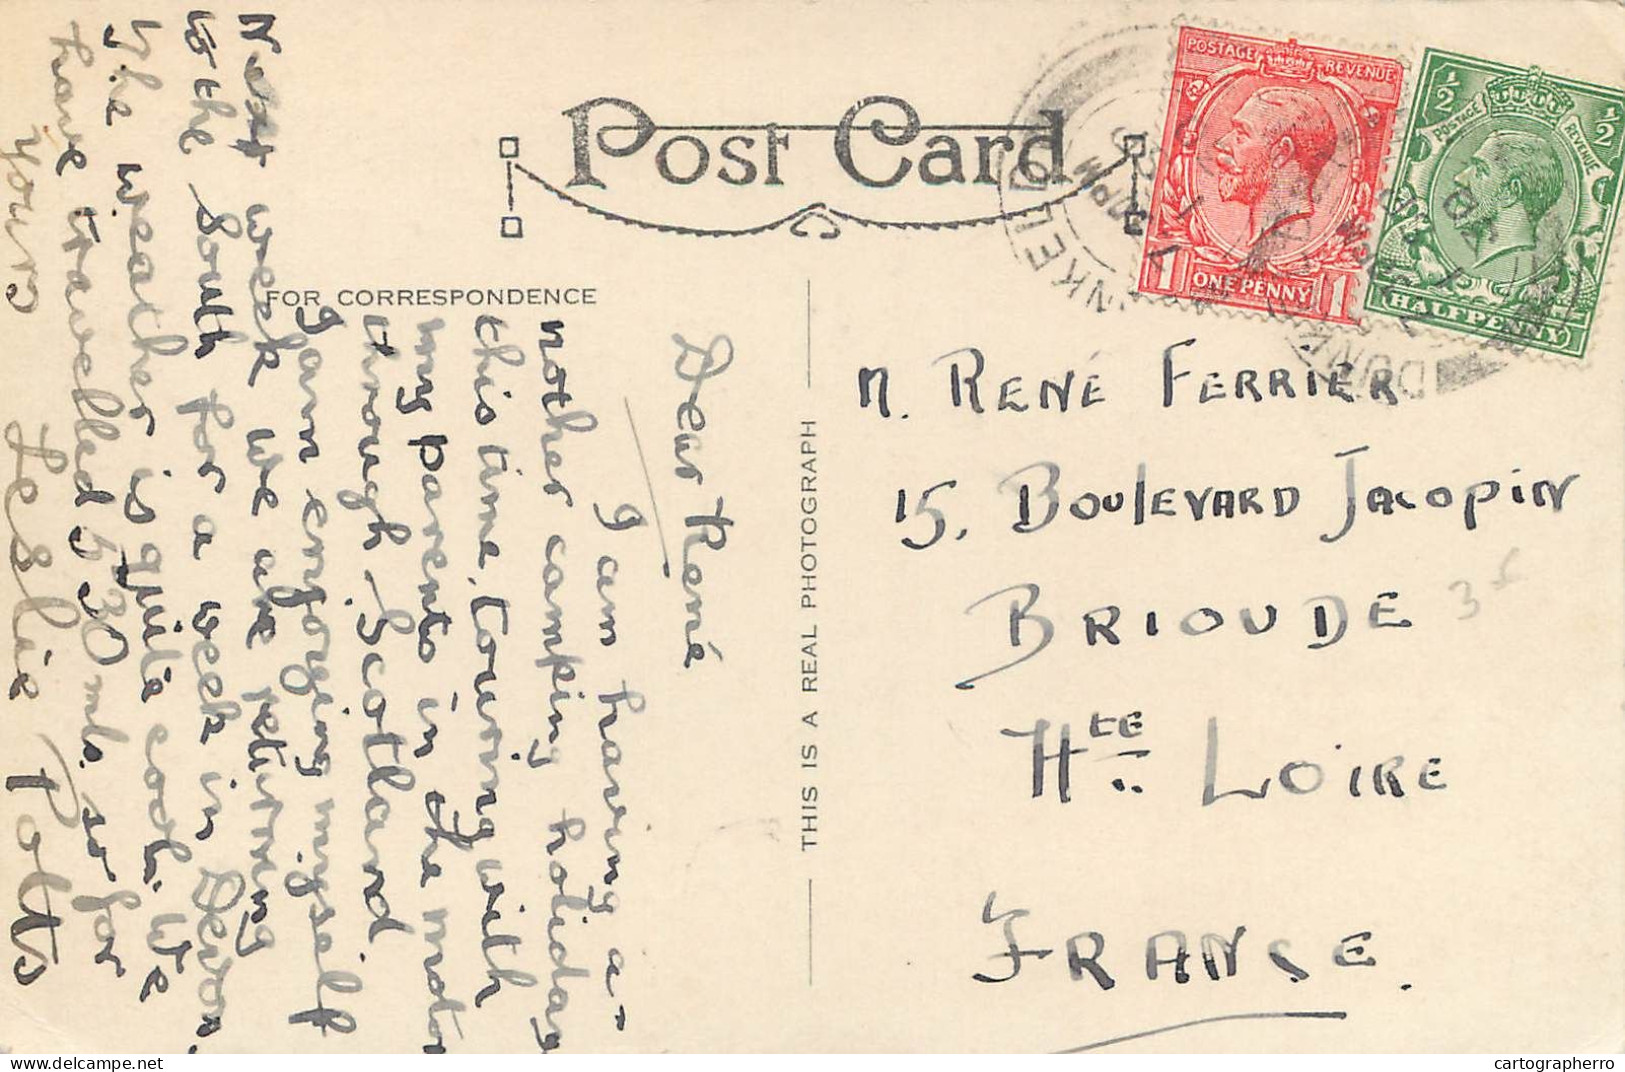 POST CARD
FOR CORRESPONDENCE
THIS IS A REAL PHOTOGRAPH
Dear René
I am having a-
nother camping holiday
this time, touring with
my parents in the motor
through Scotland
I am enjoying myself
Next week we are returning
to the South for a week in Devon.
The weather is quite cool. We
have travelled 530 mls. so far
Yours Leslie Potts
M. RENÉ FERRIER
15, BOULEVARD JACOPIN
BRIOUDE
HTE LOIRE
FRANCE.
35
POSTAGE REVENUE
1 ONE PENNY 1
½ ½
POSTAGE REVENUE
HALFPENNY
DUNKELD
cartographerro
delcampe.net